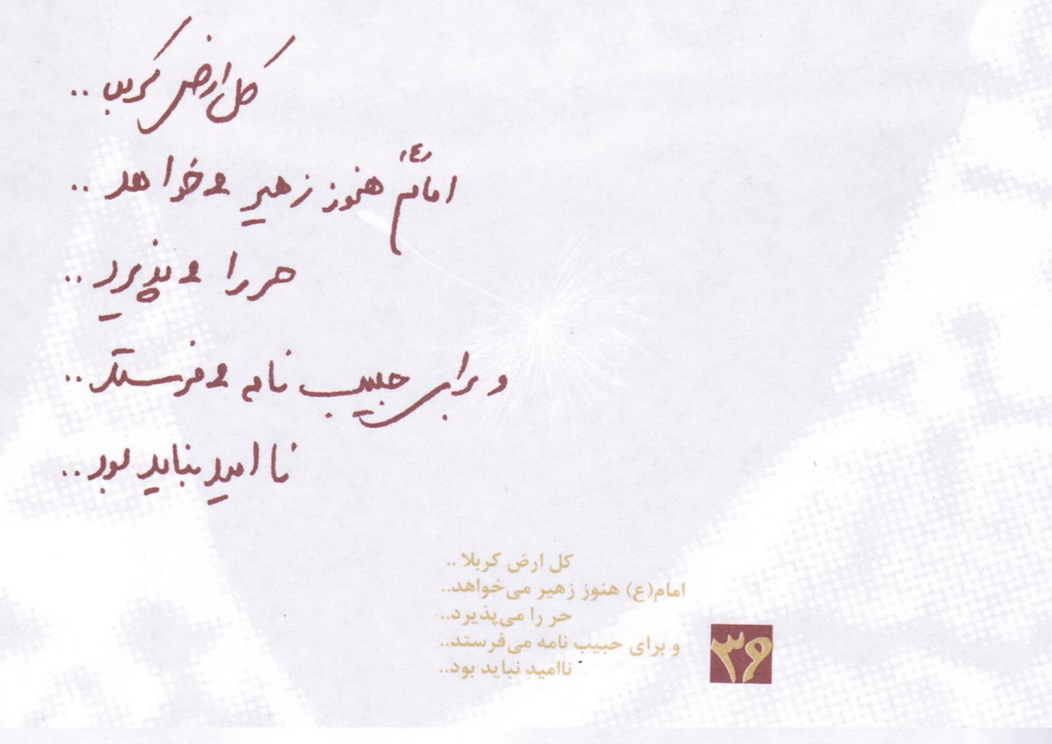 کل ارض کربلا ..
امام (ع) هنوز زهیر می‌خواهد ..
حر را می‌پذیرد ..
و برای حبیب نامه می‌فرستد ..
ناامید نباید بود ..
کل ارض کربلا ..
امام(ع) هنوز زهیر می‌خواهد..
حر را می‌پذیرد..
و برای حبیب نامه می‌فرستد..
ناامید نباید بود..
۳۶